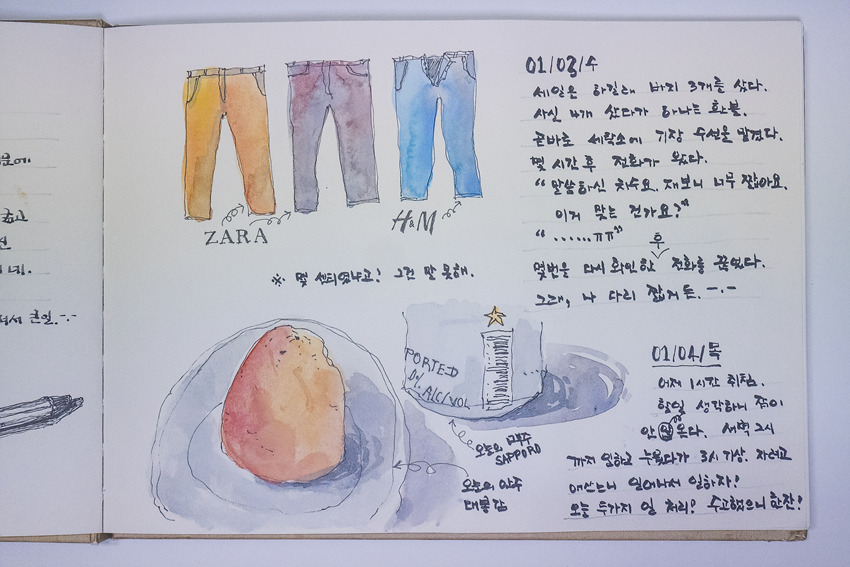 ZARA
H&M
※ 몇 센티였냐고! 그건 말 못해.
01/03/수
세일은 하길래 바지 3개를 샀다.
사실 4개 샀다가 하나는 환불.
곧바로 세탁소에 기장 수선을 맡겼다.
몇 시간 후 전화가 왔다.
"말씀하신 치수요. 재보니 너무 짧아요.
이거 맞는 건가요?"
"......ㅠㅠ"
후
몇번을 다시 확인한 전화를 끊었다.
그래, 나 다리 짧거든. -.-
PORTED
0% ALC/VOL
오늘의
SAPPORO
오늘의 안주
대봉감
01/04/목
어제 1시간 취침.
할일 생각하니 잠이
안 온다. 새벽 2시
까지 일하고 누웠다가 3시 기상. 자려고
애쓰느니 일어나서 일하자!
오늘 두가지 일 처리! 수고했으니 한잔!